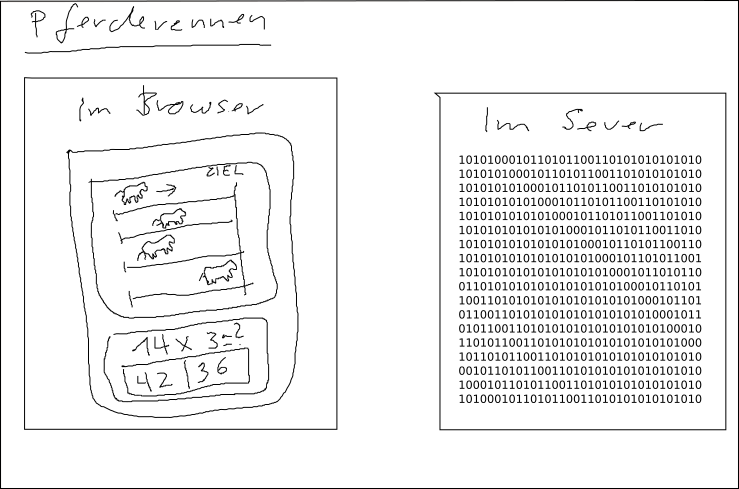 Pferderennen
im Browser
ZIEL
14 x 3 = ?
42 36
Im Sever
10101000101101011001101010101010
10101010001011010110011010101010
10101010100010110101100110101010
10101010101000101101011001101010
10101010101010001011010110011010
10101010101010100010110101100110
10101010101010101000101101011001
10101010101010101010001011010110
01101010101010101010100010110101
10011010101010101010101000101101
01100110101010101010101010001011
01011001101010101010101010100010
11010110011010101010101010101000
10110101100110101010101010101010
00101101011001101010101010101010
10001011010110011010101010101010
10100010110101100110101010101010